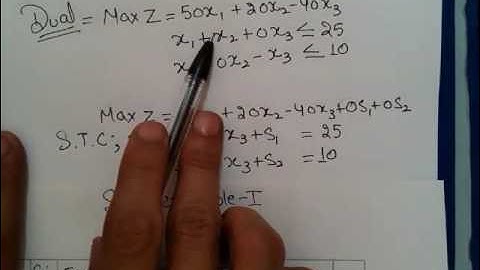 Dual = Max Z = 50x₁ + 20x₂ - 40x₃
x₁ + x₂ + 0x₃ ≤ 25
x 0x₂ - x₃ ≤ 10
Max Z = + 20x₂ - 40x₃ + 0S₁ + 0S₂
S.T.C; x₃ + S₁ = 25
x₃ + S₂ = 10
-I